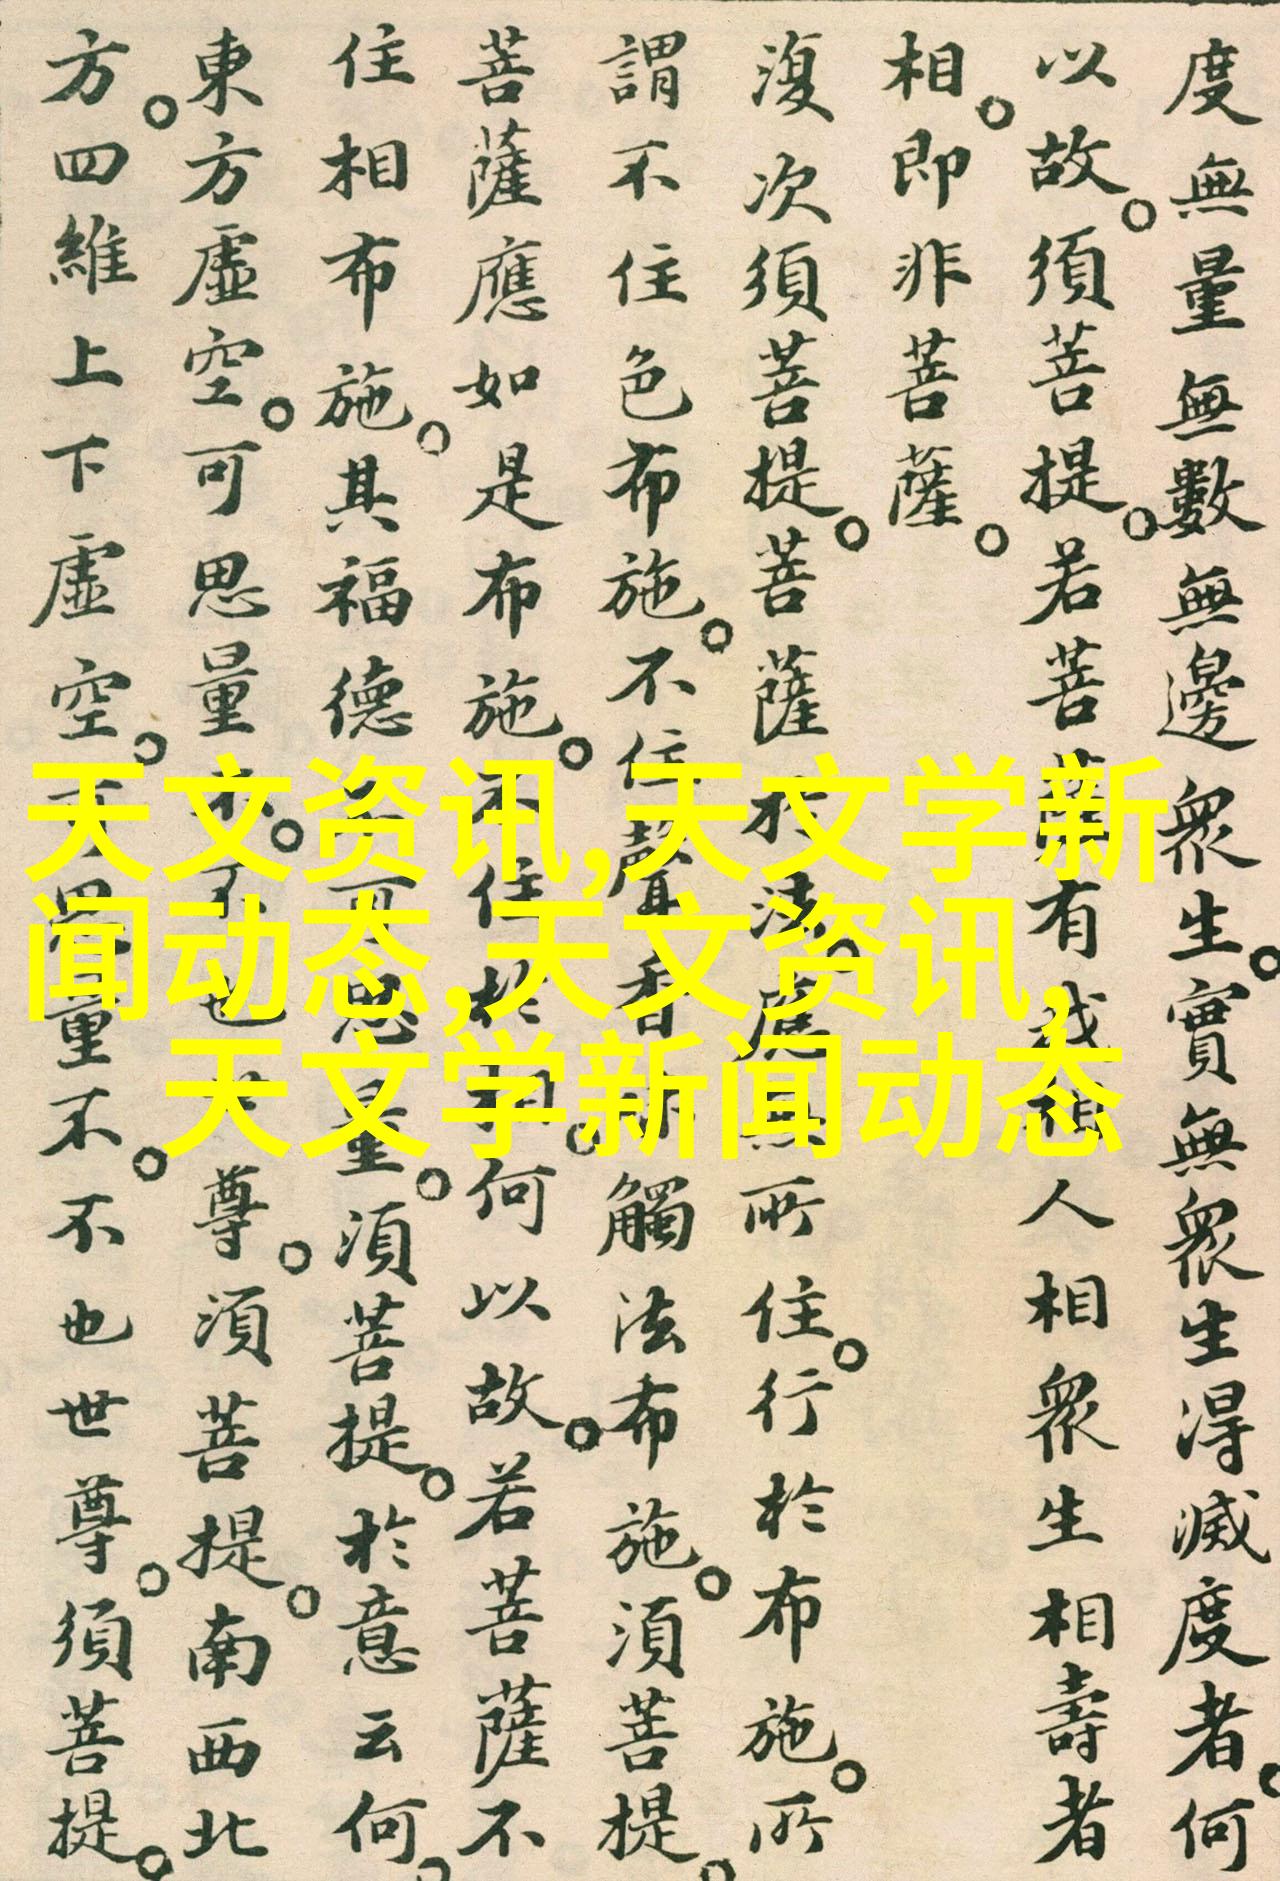 度無量無數無邊眾生。實無眾生得滅度者。何
以故。須菩提。若菩薩有我相人相眾生相壽者
相。即非菩薩。
復次須菩提。菩薩於法。應無所住。行於布施。所
謂不住色布施。不住聲香味觸法布施。須菩提。
菩薩應如是布施。不住於相。何以故。若菩薩不
住相布施。其福德不可思量。須菩提。於意云何。
東方虛空。可思量不。不也世尊。須菩提。南西北
方。四維上下虛空。可思量不。不也世尊。須菩提。
天文资讯,天文学新
闻动态,天文资讯,
天文学新闻动态